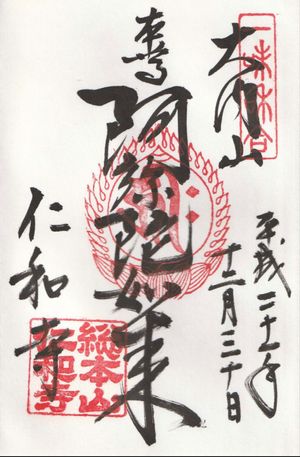 大内山
平成二十一年
十二月三十日
本尊
阿弥陀如来
仁和寺
総本山
仁和寺